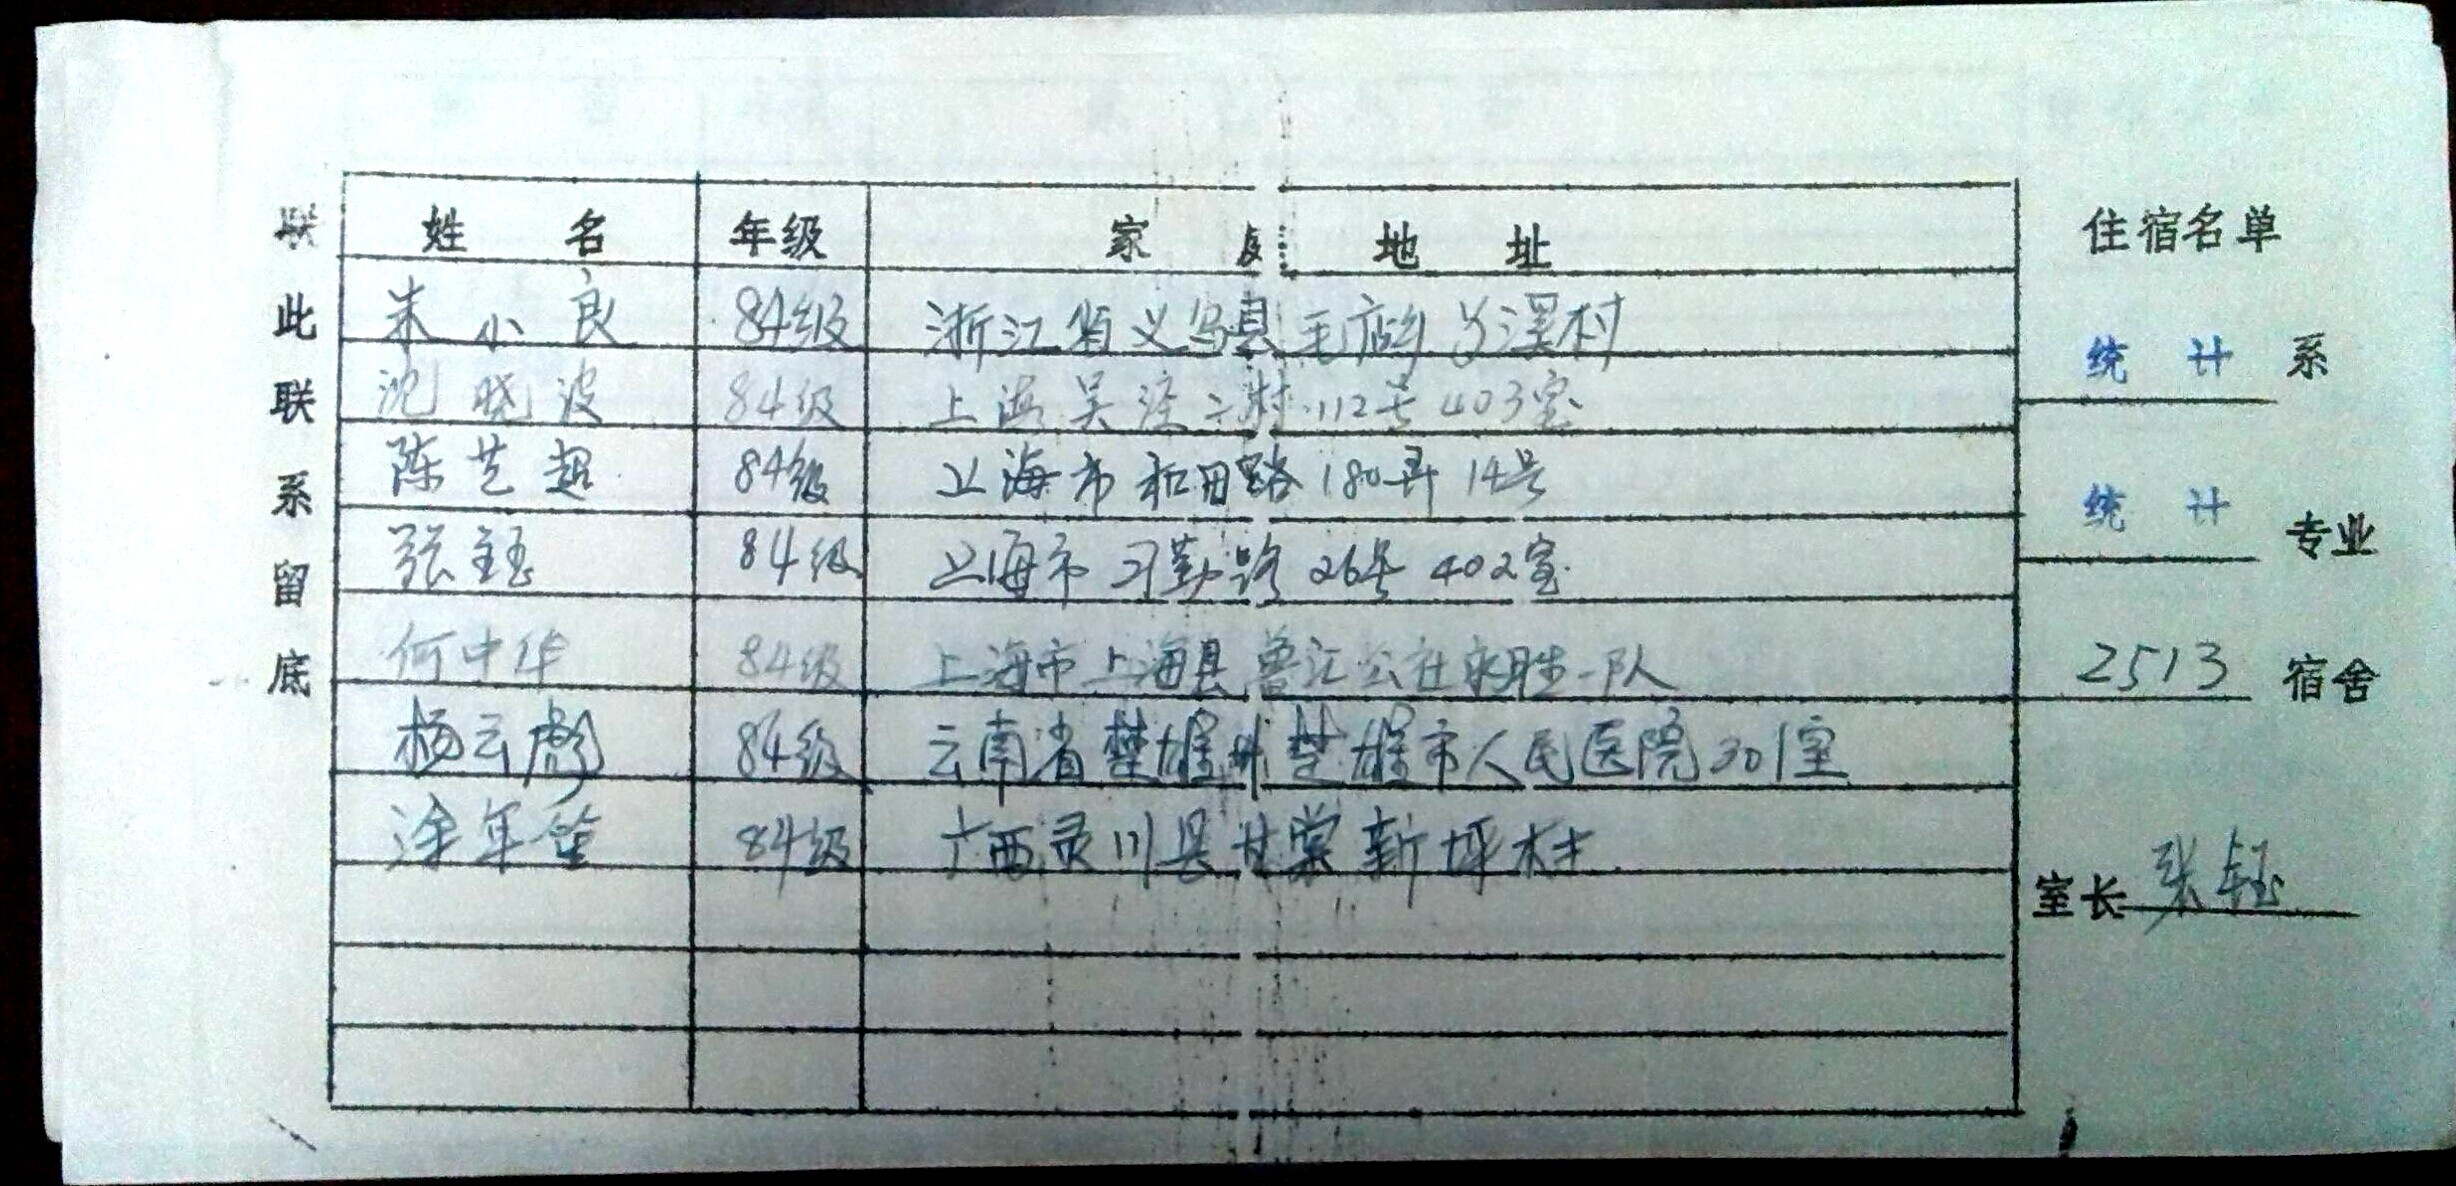 住宿名单
统计系
统计专业
2513宿舍
室长 张钰
联此联系留底
姓名 年级 家 地址
朱小良 84级 浙江省义乌县毛店乡 溪村
沈晓波 84级 上海吴泾二村112号403室
陈艺超 84级 上海市和田路180弄14号
张钰 84级 上海市习勤路26号402室
何中华 84级 上海市上海县鲁汇公社永胜一队
杨云彪 84级 云南省楚雄州楚雄市人民医院301室
涂年生 84级 广西灵川县甘棠新坪村